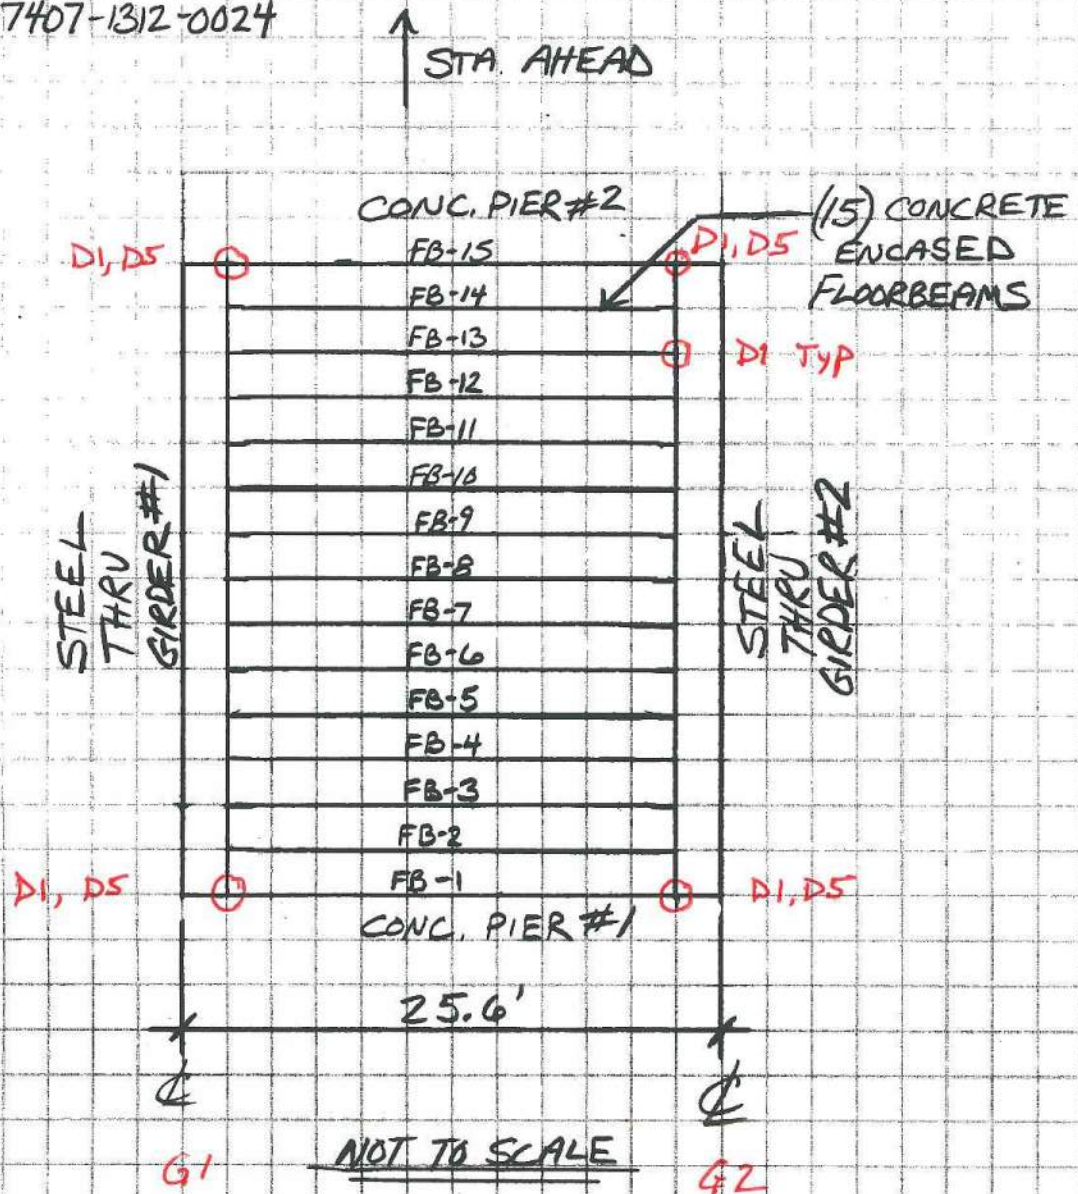 7407-1312-0024
STA. AHEAD
CONC. PIER #2
(15) CONCRETE
ENCASED
FLOORBEAMS
D1, D5
FB-15
D1, D5
FB-14
FB-13
D1 TYP
FB-12
FB-11
FB-10
FB-9
FB-8
FB-7
FB-6
FB-5
FB-4
FB-3
FB-2
FB-1
STEEL
THRU
GIRDER #1
STEEL
THRU
GIRDER #2
D1, D5
D1, D5
CONC. PIER #1
25.6'
℄
℄
NOT TO SCALE
G1
G2